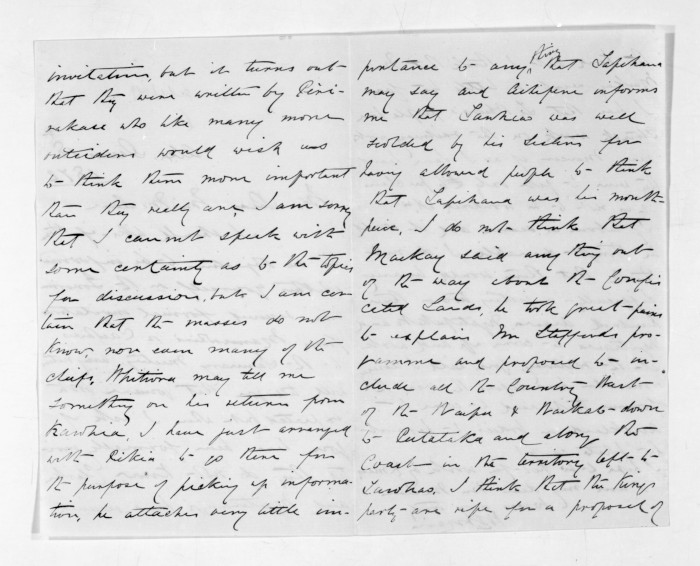 invitation, but it turns out
that they were written by
who like many more
outsiders would wish us
to think them more important
than they really are, I am sorry
that I cannot speak with
some certainty as to the topics
for discussion, but I am cer-
tain that the masses do not
know, nor even many of the
chiefs, Whitiora may tell me
something on his return from
Kawhia, I have just arranged
with to go there for
the purpose of picking up informa-
tion, he attaches very little im-
portance to any thing that Tapihana
may say and informs
me that Tawhiao was well
scolded by his sisters for
having allowed people to think
that Tapihana was his mouth-
piece, I do not think that
Mackay said any thing out
of the way about the Confis
cated Lands, he took great pains
to explain Mr Sheffords pro-
gramme and proposed to in-
clude all the Country West
of the Waipa & Waikato down
to and along the
Coast in the territory left to
Tawhiao, I think that the Kings
party are ripe for a proposal of